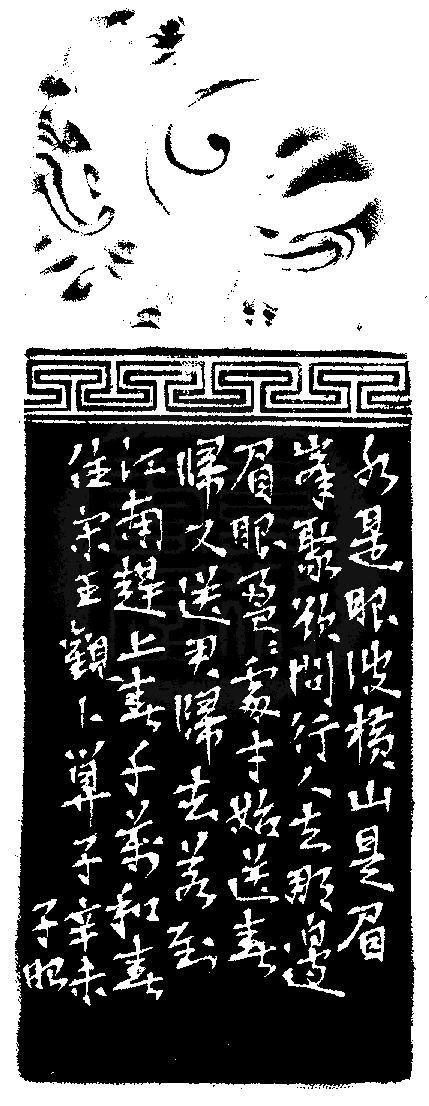 水是眼波橫山是眉
峯聚欲問行人去那邊
眉眼盈〻處才始送春
歸又送君歸去若到
江南趕上春千萬和春
住宋王觀卜算子辛未
子